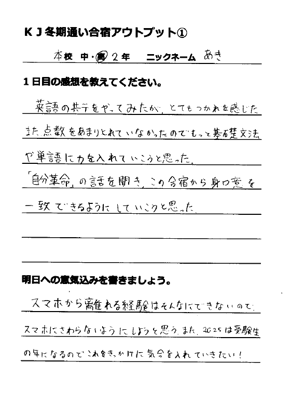 KJ冬期通い合宿アウトプット①
本校 中・高 2年 ニックネーム あき
1日目の感想を教えてください。
英語の共テをやってみたが、とてもつかれを感じた
また点数をあまりとれていなかったのでもっと基礎文法
や単語に力を入れていこうと思った。
「自分革命」の話を聞き、この合宿から身口意を
一致できるようにしていこうと思った
明日への意気込みを書きましょう。
スマホから離れる経験はそんなにできないので、
スマホにさわらないようにしようと思う。また、2025は受験生
の年になるのでこれをきっかけに気合を入れていきたい！